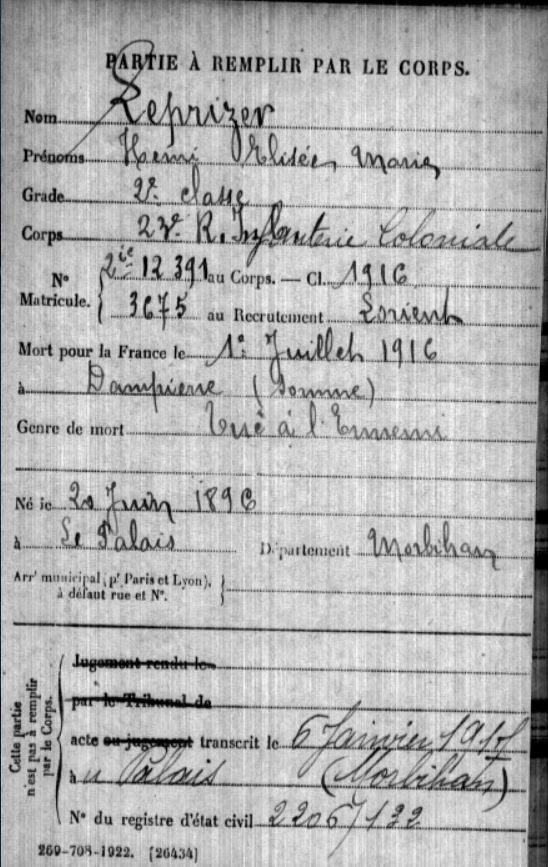 PARTIE À REMPLIR PAR LE CORPS.
Nom Leprizer
Prénoms Henri Elisée, Marie
Grade 2e classe
Corps 23e R. Infanterie Coloniale
No Matricule. { 2ie 12 391 au Corps. — Cl. 1916
3675 au Recrutement Lorient
Mort pour la France le 1er Juillet 1916
à Dampierre (Somme)
Genre de mort Tué à l'Ennemi
Né le 20 Juin 1896
à Le Palais Département Morbihan
Arrt municipal (pr Paris et Lyon),
à défaut rue et No.
Cette partie n'est pas à remplir par le Corps.
Jugement rendu le
par le Tribunal de
acte ou jugement transcrit le 6 Janvier 1917
à Palais (Morbihan)
No du registre d'état civil 2206/132
269-708-1922. [26434]